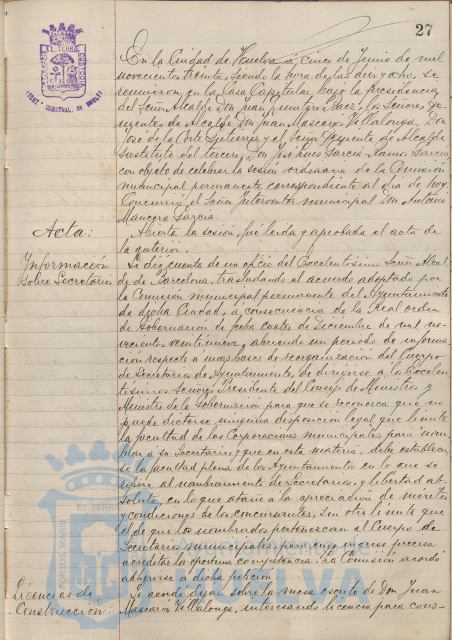 27
En la Ciudad de Huelva á cinco de Junio de mil
novecientos treinta, siendo la hora de las diez y ocho, se
reunieron en la Casa Capitular bajo la presidencia
del Señor Alcalde Don Juan Quintero Baez, los Señores Te-
nientes de Alcalde Don Juan Mascarós Villalonga, Don
José de la Corte Gutierrez y el Señor Teniente de Alcalde
sustituto del tercero, Don José Luis García-Ramos García
con objeto de celebrar la sesión ordinaria de la Comisión
municipal permanente correspondiente al día de hoy.
Concurrió el Señor Interventor municipal Don Antonio
Mancera García.
Acta:
Abierta la sesión, fué leida y aprobada el acta de
la anterior.
Información
sobre Secretarios
Se dió cuenta de un oficio del Excelentísimo Señor Alcal-
de de Barcelona, trasladando el acuerdo adoptado por
la Comisión municipal permanente del Ayuntamiento
de dicha Ciudad, á consecuencia de la Real orden
de Gobernación de fecha cuatro de Diciembre de mil no-
vecientos veintinueve, abriendo un periodo de informa-
ción respecto á unas bases de reorganización del Cuerpo
de Secretarios de Ayuntamiento, de dirigirse a los Excelen-
tísimos Señores Presidente del Consejo de Ministros y
Ministro de la Gobernación para que se reconozca que no
puede dictarse ninguna disposición legal que limite
la facultad de las Corporaciones municipales para nom-
brar a su Secretario, y que en esta materia, debe establecer-
se la facultad plena de los Ayuntamientos en lo que se
refiere al nombramiento de Secretarios, y libertad ab-
soluta, en lo que atañe a la apreciación de meritos
y condiciones de los concursantes, sin otro limite que
el de que los nombrados pertenezcan al Cuerpo de
Secretarios municipales, para cuyo ingreso precisa
acreditar la oportuna competencia. La Comisión acordó
adherirse a dicha petición.
Licencias de
Construcción:
Se acordó dejar sobre la mesa escrito de Don Juan
Mascarós Villalonga, interesando licencia para cons-